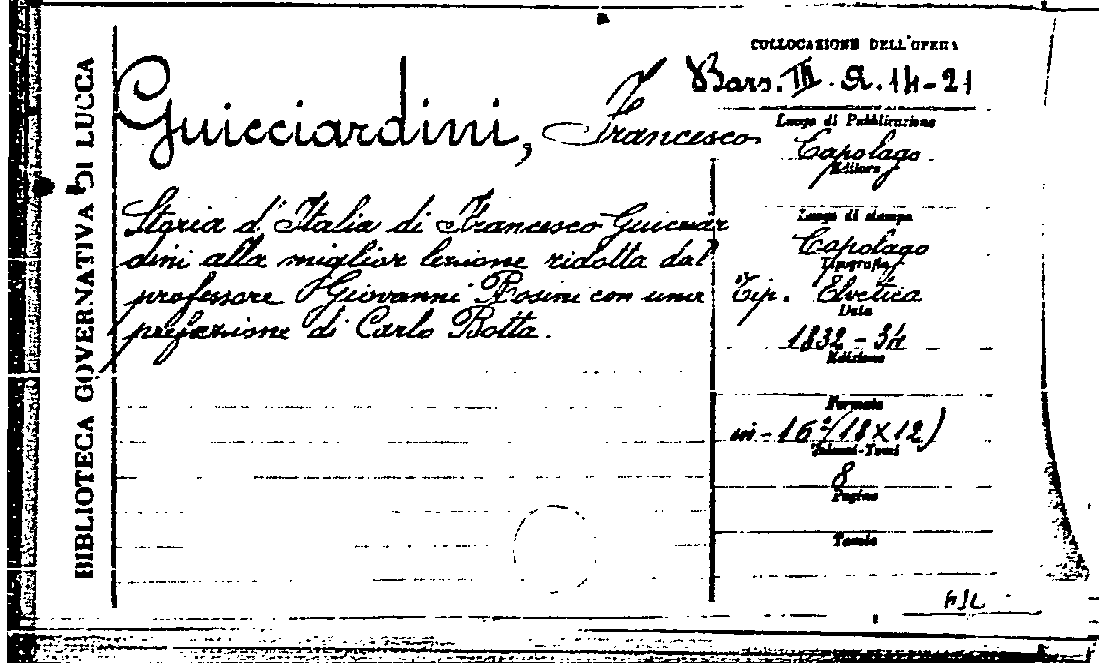 BIBLIOTECA GOVERNATIVA DI LUCCA
Guicciardini, Francesco
Storia d'Italia di Francesco Guicciar
dini alla miglior lezione ridotta dal
professore Giovanni Rosini con una
prefazione di Carlo Botta.
COLLOCAZIONE DELL'OPERA
Bars. III. A. 14-21
Luogo di Pubblicazione
Capolago
Editore
Luogo di stampa
Capolago
Tipografia
Tip. Elvetica
Data
1832 - 34
Edizione
Formato
in-16°(18x12)
Volumi-Tomi
8
Pagine
Tavole